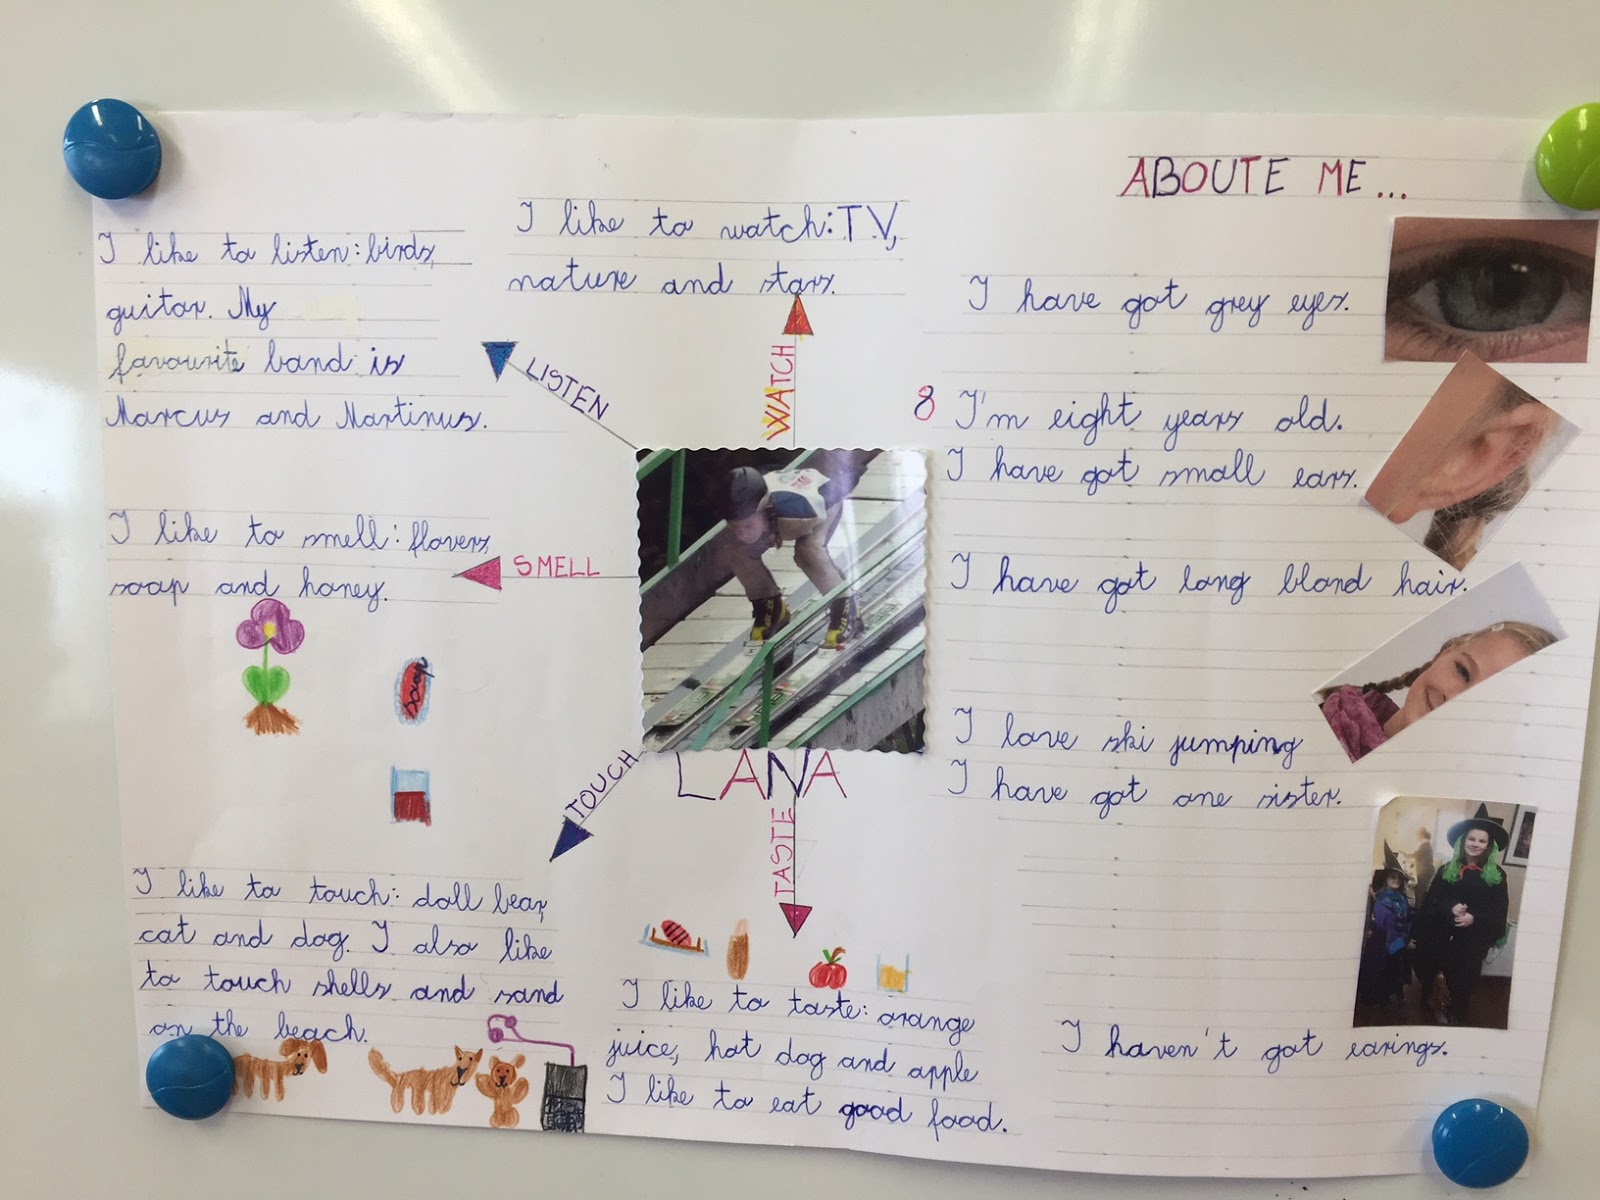 ABOUTE ME...
I like to listen: birds,
guitar. My
favourite band is
Marcus and Martinus.
I like to watch: TV,
nature and stars.
LISTEN
WATCH
I like to smell: flovers,
soap and honey.
SMELL
soap
TOUCH
LANA
TASTE
I like to touch: doll bear,
cat and dog. I also like
to touch shells and sand
on the beach.
I like to taste: orange
juice, hot dog and apple
I like to eat good food.
I have got grey eyes.
8 I'm eight years old.
I have got small ears.
I have got long blond hair.
I love ski jumping
I have got one sister.
I haven't got earings.